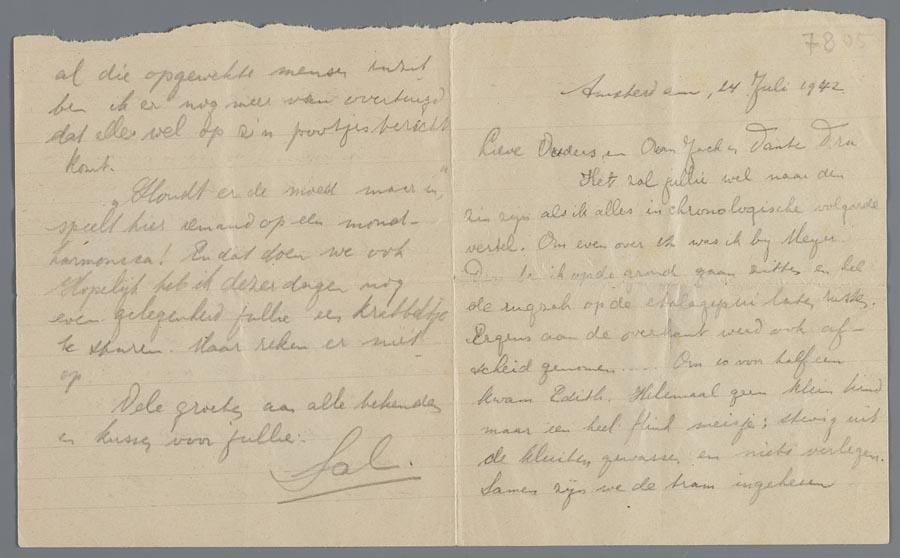 7805
Amsterdam, 24 Juli 1942
Lieve Ouders, en Oom Jack en Tante Dra
Het zal jullie wel naar den
zin zijn als ik alles in chronologische volgorde
vertel. Om even over 11 was ik by Meyer
ik op de grond gaan zitten en heb
de rugzak op de etalagepui laten rusten.
Ergens aan de overkant werd ook af-
scheid genomen..... Om 10 voor half een
kwam Edith. Helemaal geen klein kind
maar een heel flink meisje; stevig uit
de kluiten gewassen en niets verlegen.
Samen zijn we de tram ingehesen
al die opgewekte mensen
ben ik er nog meer van overtuigd
dat alles wel op z'n pootjes terecht
komt.
„Houdt er de moed maar in"
speelt hier iemand op een mond-
harmonica! En dat doen we ook
Hopelijk heb ik dezer dagen nog
even gelegenheid jullie een krabbeltje
te sturen. Maar reken er niet
op.
Vele groeten aan alle bekenden
en kussen voor jullie.
Sal.